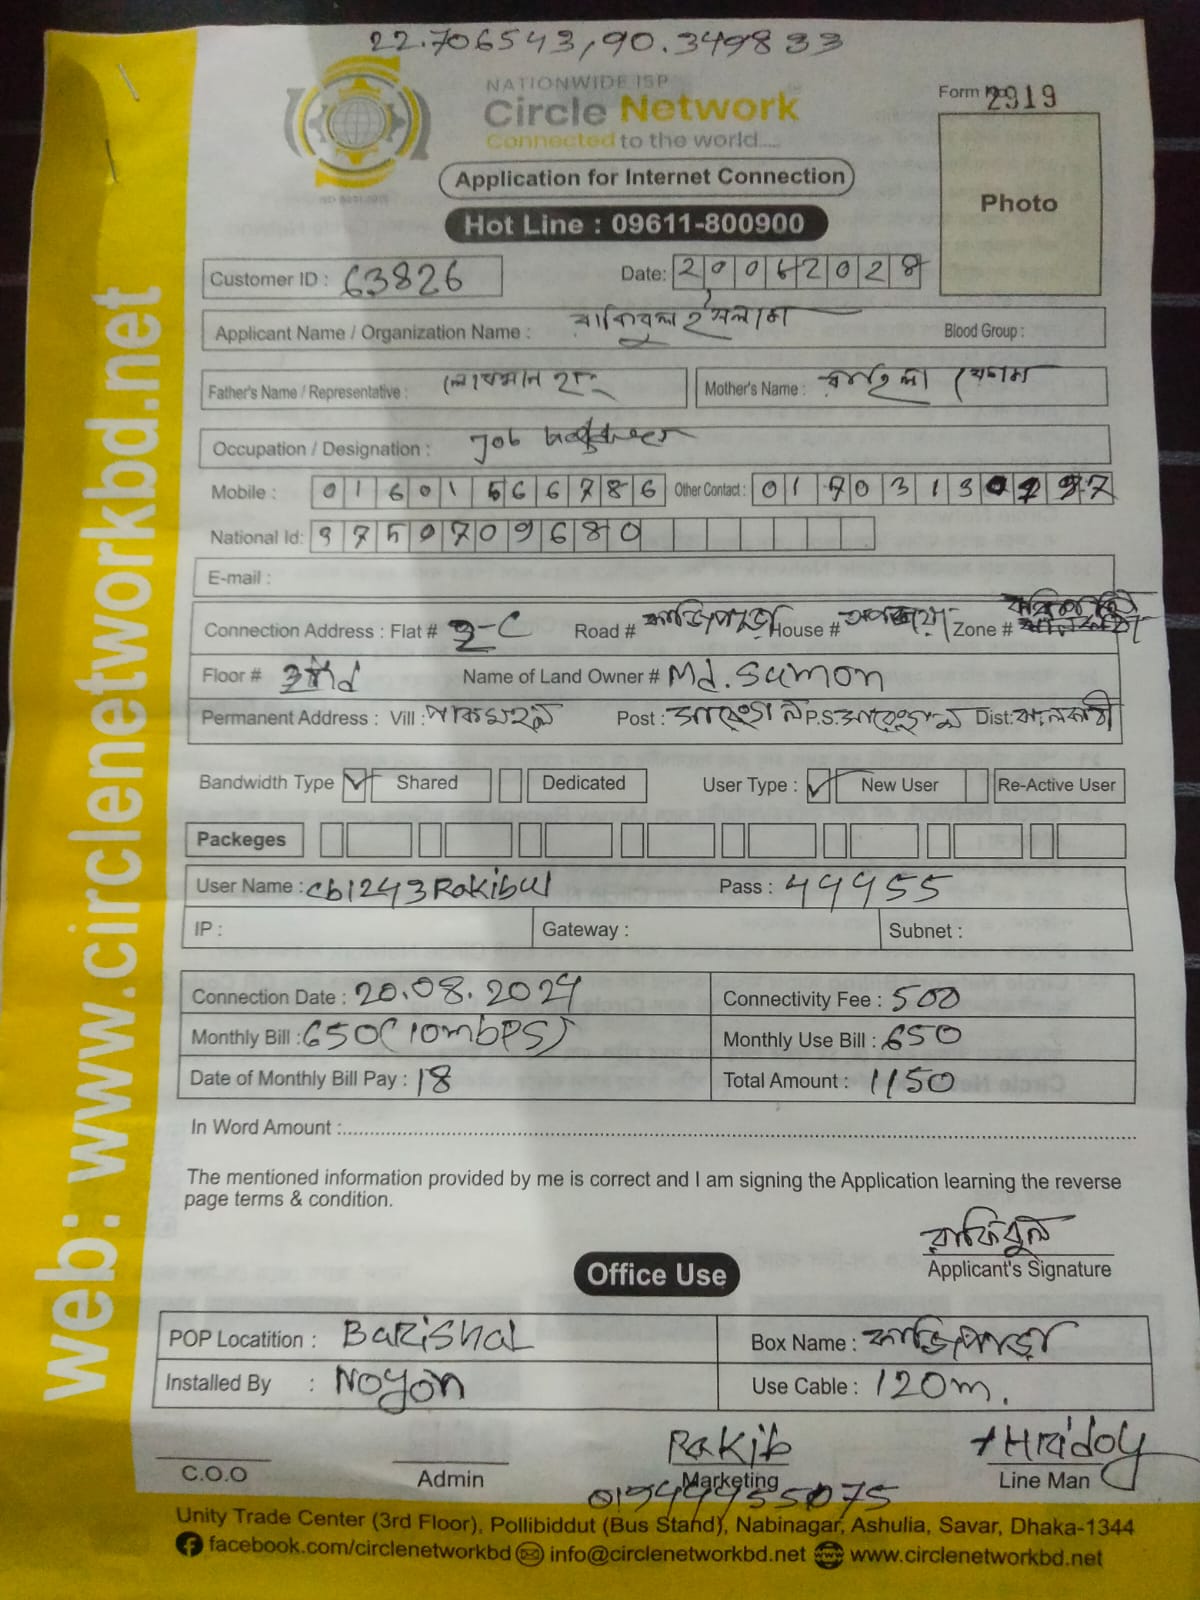 22.706543,90.349833
NATIONWIDE ISP
Circle Network
Connected to the world....
Form No. 2919
Photo
Application for Internet Connection
Hot Line : 09611-800900
Customer ID : 63826 Date: 20062024
Applicant Name / Organization Name : রাকিবুল ইসলাম Blood Group :
Father's Name / Representative : Mother's Name : বেগম
Occupation / Designation : Job
Mobile : 01601566786 Other Contact : 01703130297
National Id: 3750709680
E-mail :
Connection Address : Flat # 3-C Road # কাজিপাড়া House # Zone #
Floor # 3rd Name of Land Owner # Md. Sumon
Permanent Address : Vill : Post : P.S: Dist: ঝালকাঠী
Bandwidth Type Shared Dedicated User Type : New User Re-Active User
Packeges
User Name : cb1243Rakibul Pass : 44455
IP : Gateway : Subnet :
Connection Date : 20.08.2024 Connectivity Fee : 500
Monthly Bill : 650(10mbps) Monthly Use Bill : 650
Date of Monthly Bill Pay : 18 Total Amount : 1150
In Word Amount :
The mentioned information provided by me is correct and I am signing the Application learning the reverse
page terms & condition.
রাকিবুল
Applicant's Signature
Office Use
POP Locatition : Barishal Box Name : কাজিপাড়া
Installed By : Noyon Use Cable : 120m.
Rakib Hridoy
C.O.O Admin Marketing Line Man
Unity Trade Center (3rd Floor), Pollibiddut (Bus Stand), Nabinagar, Ashulia, Savar, Dhaka-1344
facebook.com/circlenetworkbd info@circlenetworkbd.net www.circlenetworkbd.net
web: www.circlenetworkbd.net